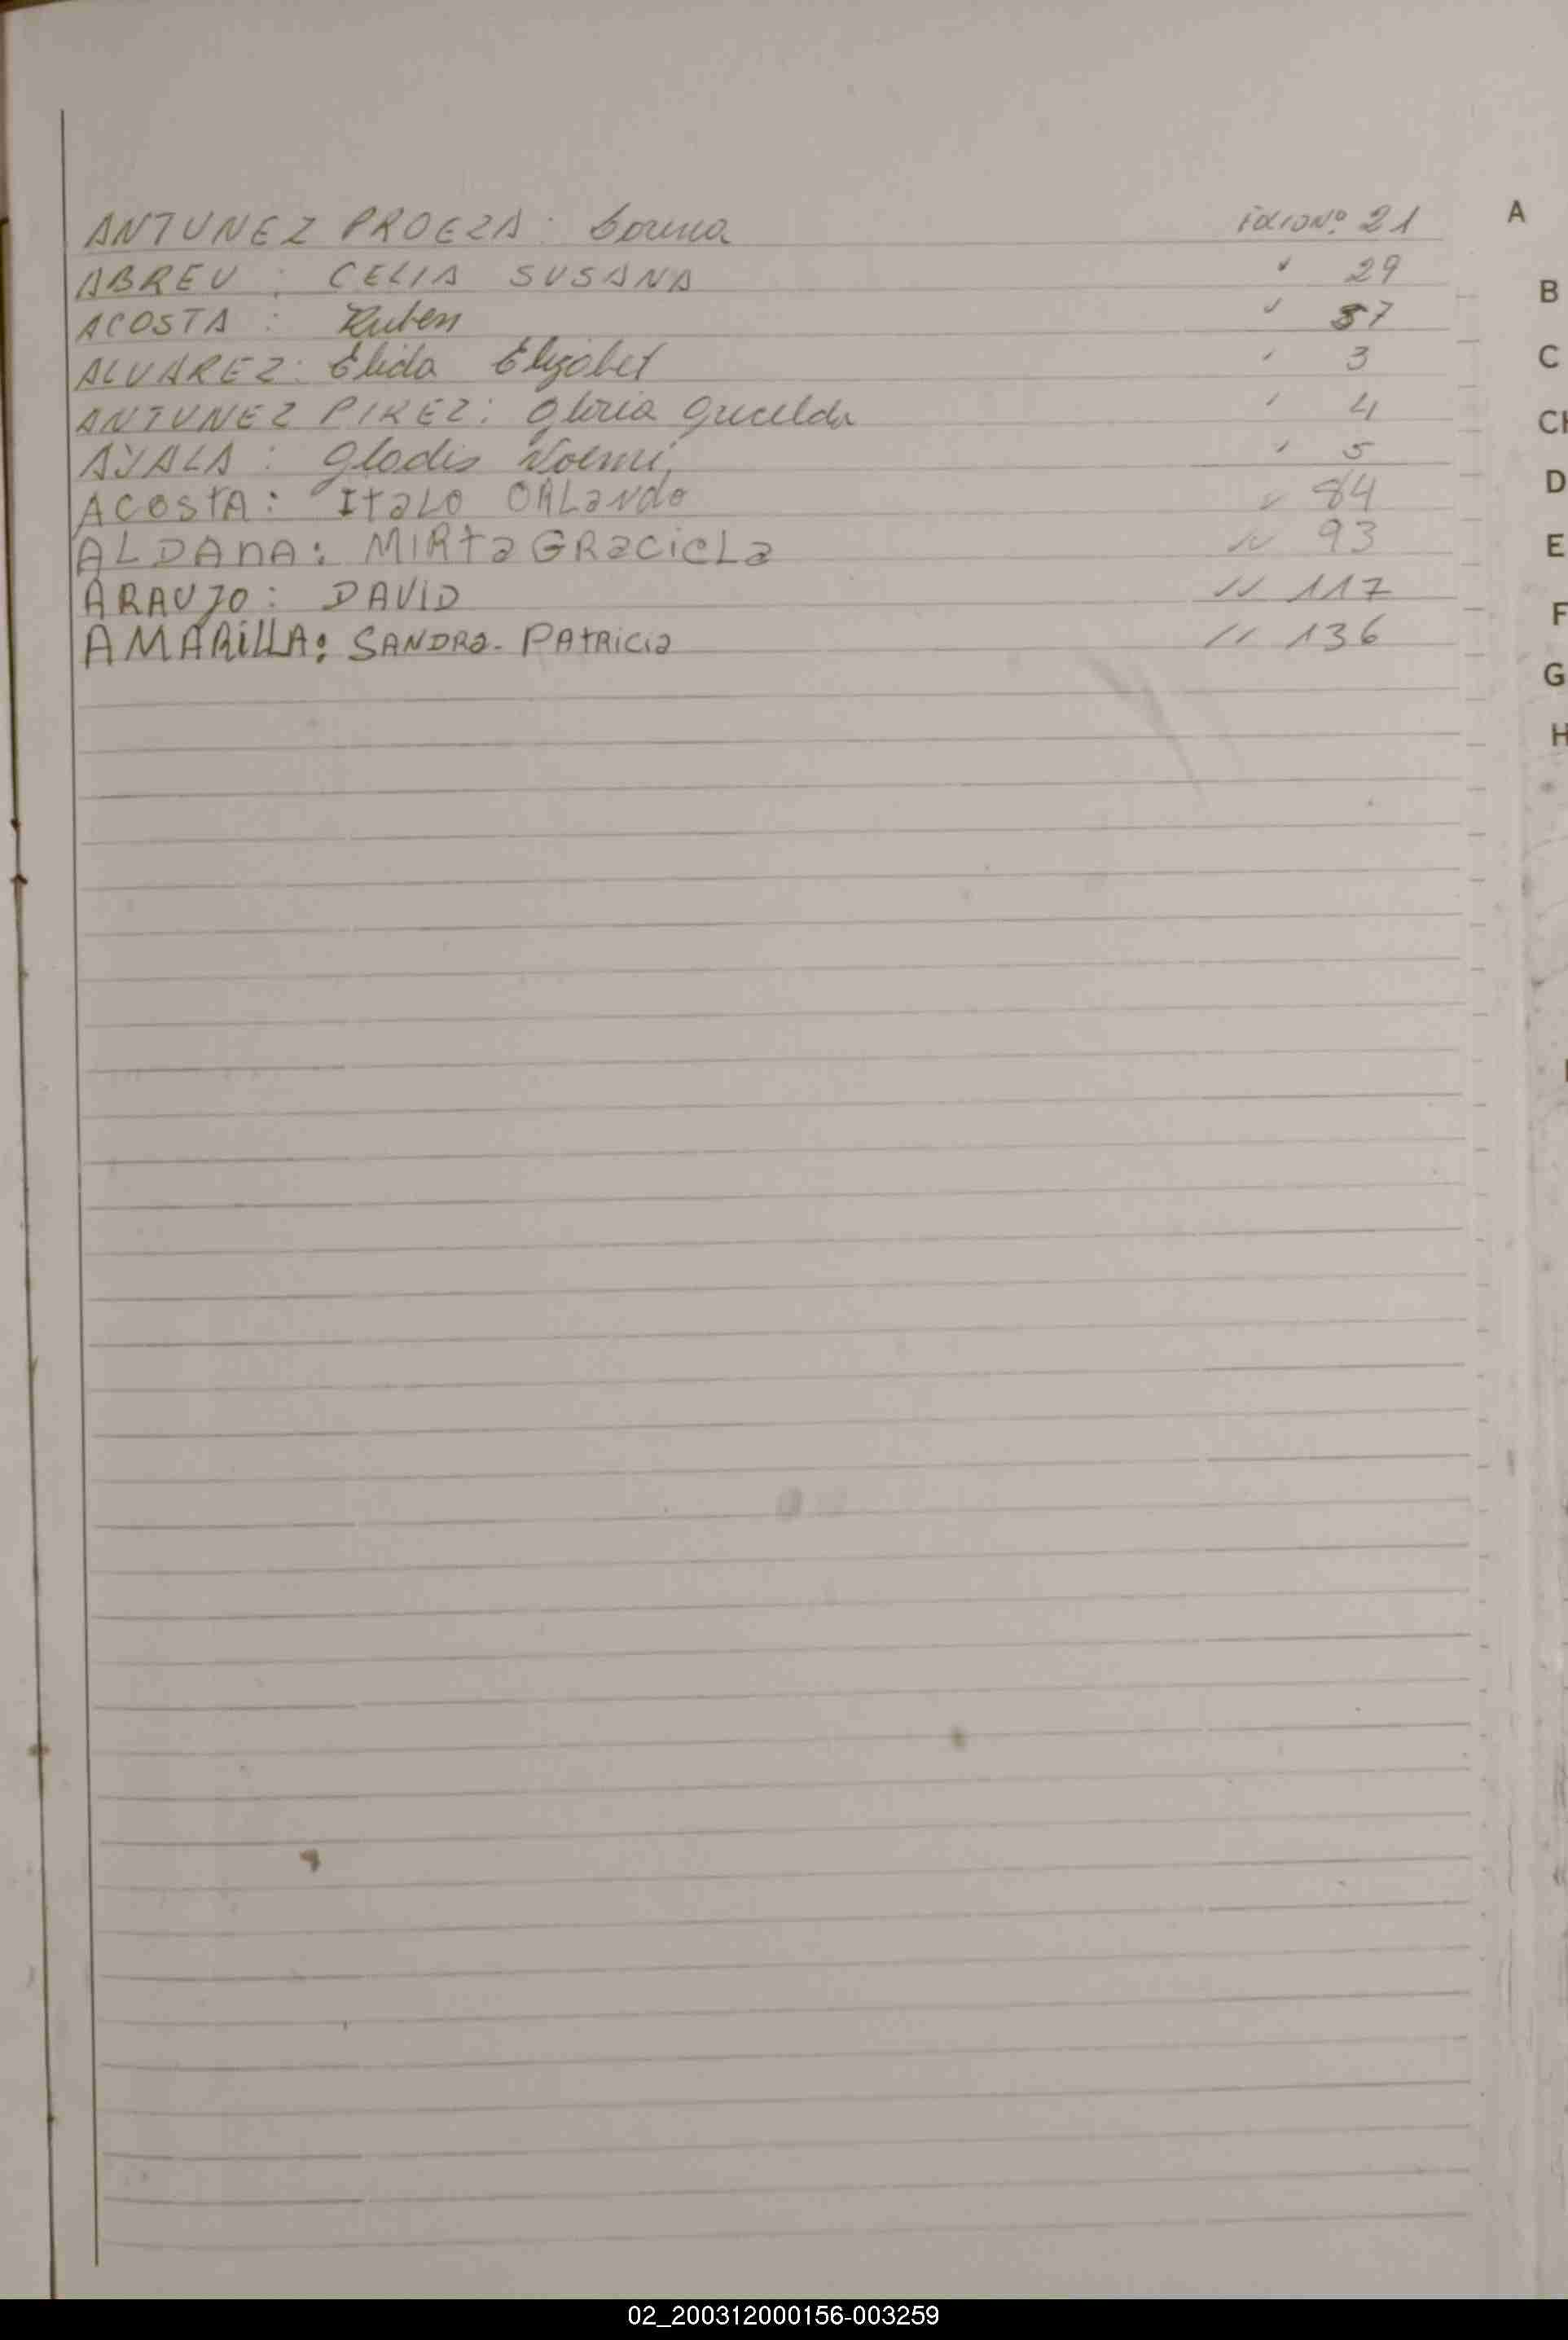 ANTUNEZ PROEZA: Lorena FOLIO Nº 21 A
ABREU: CELIA SUSANA " 29 B
ACOSTA: Ruben " 37
ALVAREZ: Elida Elizabet " 3 C
ANTUNEZ PIREZ: Gloria Gricelda " 4 CH
AYALA: Gladis Noemi, " 5
ACOSTA: ItaLO ORLando " 84 D
ALDANA: MIRta GRacieLa " 93 E
ARAUJO: DAVID " 117 F
AMARILLA: SANDRa- PAtRicia " 136
G
H
02_200312000156-003259